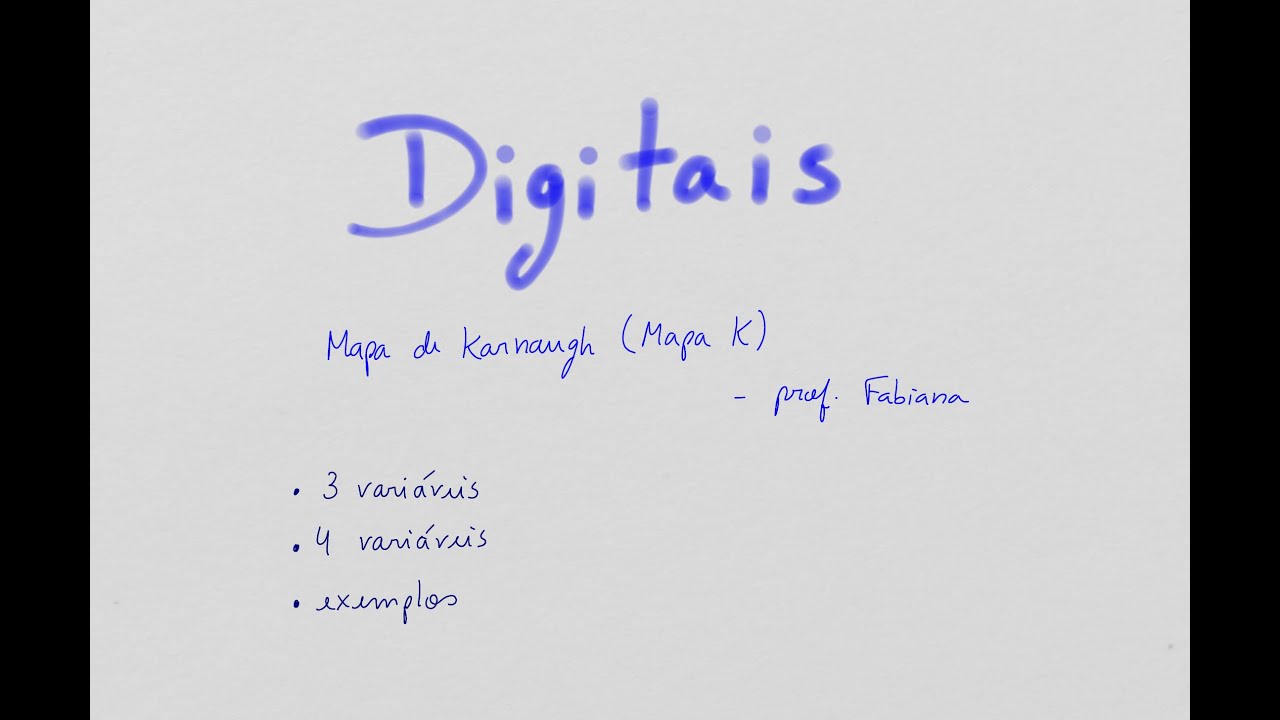 Digitais
Mapa de Karnaugh (Mapa K)
- prof. Fabiana
• 3 variáveis
• 4 variáveis
• exemplos